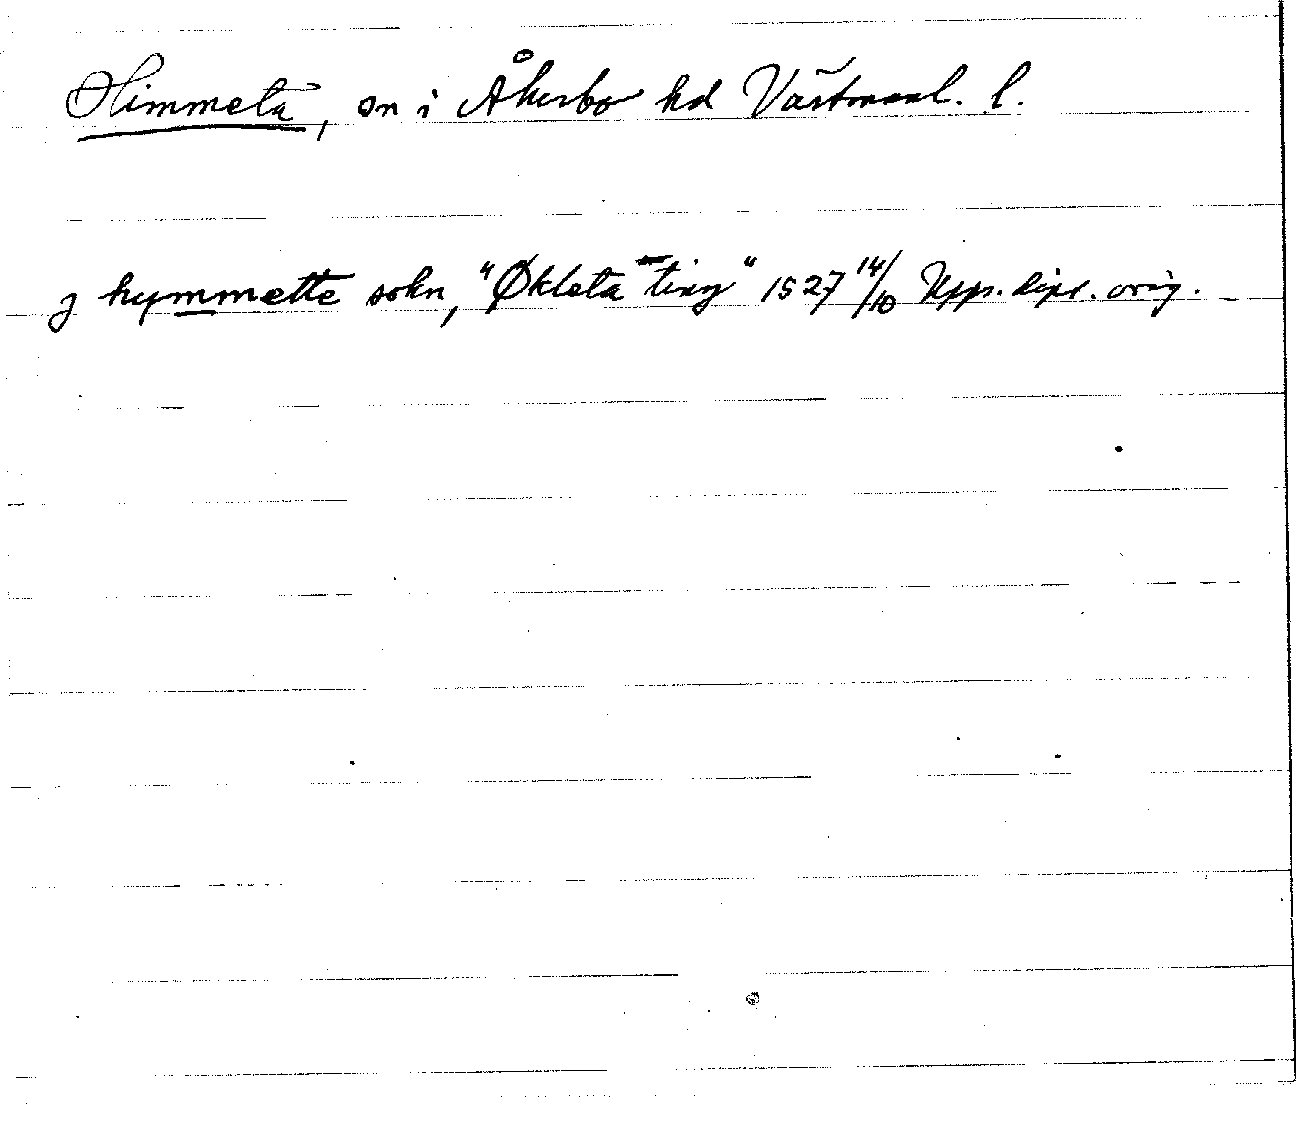 Himmeta, sn i Åkerbo hd Västmanl. l.
j hymmette sokn, "Økleta ting" 1527 14/10 Upps. dipl. orig.